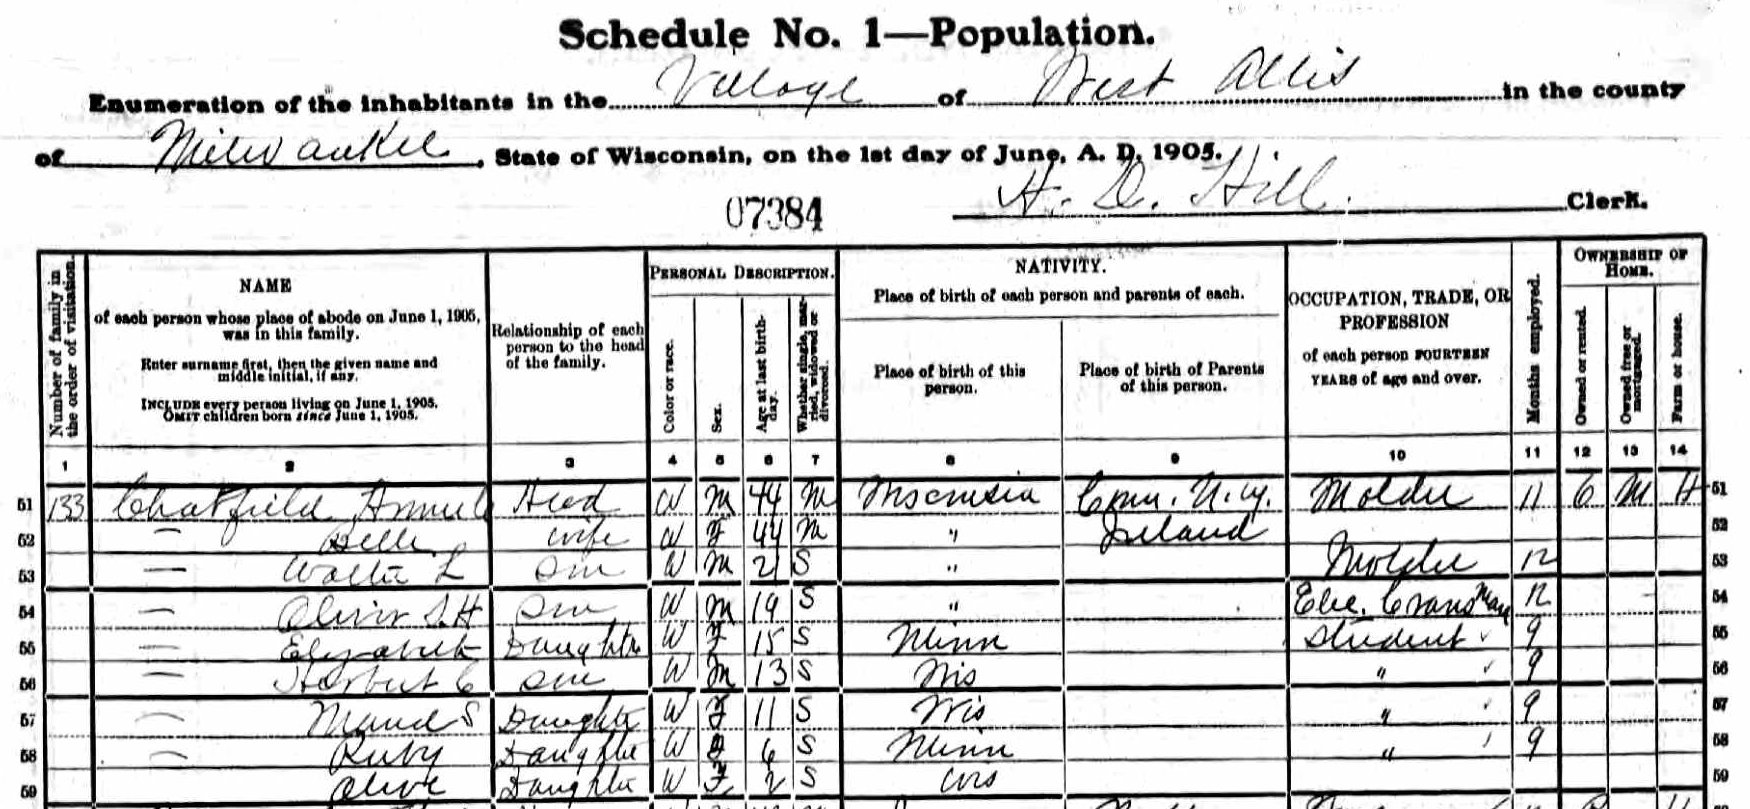 Schedule No. 1—Population.
Enumeration of the inhabitants in the Village of West Allis in the county
of Milwaukee, State of Wisconsin, on the 1st day of June, A. D. 1905.
07384 H. D. Hill. Clerk.
Number of family in the order of visitation.
NAME
of each person whose place of abode on June 1, 1905, was in this family.
Enter surname first, then the given name and middle initial, if any.
INCLUDE every person living on June 1, 1905.
OMIT children born since June 1, 1905.
Relationship of each person to the head of the family.
PERSONAL DESCRIPTION.
Color or race.
Sex.
Age at last birth-day.
Whether single, mar-ried, widowed or divorced.
NATIVITY.
Place of birth of each person and parents of each.
Place of birth of this person.
Place of birth of Parents of this person.
OCCUPATION, TRADE, OR PROFESSION
of each person FOURTEEN YEARS of age and over.
Months employed.
OWNERSHIP OF HOME.
Owned or rented.
Owned free or mortgaged.
Farm or house.
1 2 3 4 5 6 7 8 9 10 11 12 13 14
51 133 Chatfield Head W M 44 M Wisconsin Conn. N.Y. Molder 11 O M H 51
52 — Belle wife W F 44 M " Ireland 52
53 — Walter L son W M 21 S " Molder 12 53
54 — Oliver S.H son W M 19 S " Elec. Crans Man 12 54
55 — Elizabeth Daughter W F 15 S Minn student 9 55
56 — Herbert C son W M 13 S Wis " 9 56
57 — Maud S Daughter W F 11 S Wis " 9 57
58 — Ruby Daughter W F 6 S Minn " 9 58
59 Olive Daughter W F 2 S Wis 59